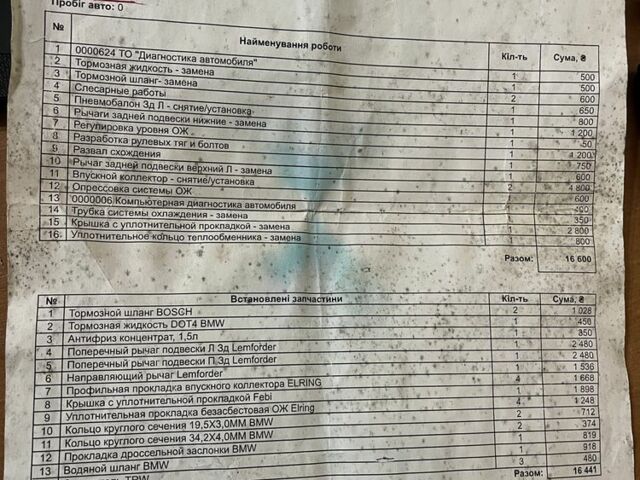 Пробіг авто: 0
№ Найменування роботи Кіл-ть Сума, ₴
1 0000624 ТО "Диагностика автомобиля" 1 500
2 Тормозная жидкость - замена 1 500
3 Тормозной шланг- замена 2 600
4 Слесарные работы 1 650
5 Пневмобалон Зд Л - снятие/установка 1 800
6 Рычаги задней подвески нижние - замена 1 1 200
7 Регулировка уровня ОЖ 1 50
8 Разработка рулевых тяг и болтов 1 1 200
9 Развал схождения 1 750
10 Рычаг задней подвески верхний Л - замена 1 600
11 Впускной коллектор - снятие/установка 2 4 800
12 Опрессовка системы ОЖ 1 600
13 0000006 Компьютерная диагностика автомобиля 1 400
14 Трубка системы охлаждения - замена 1 350
15 Крышка с уплотнительной прокладкой - замена 1 2 800
16 Уплотнительное кольцо теплообменника - замена 1 800
Разом: 16 600
№ Встановлені запчастини Кіл-ть Сума, ₴
1 Тормозной шланг BOSCH 2 1 028
2 Тормозная жидкость DOT4 BMW 1 450
3 Антифриз концентрат, 1,5л 1 350
4 Поперечный рычаг подвески Л Зд Lemforder 1 2 480
5 Поперечный рычаг подвески Л Зд Lemforder 1 2 480
6 Направляющий рычаг Lemforder 1 1 536
7 Профильная прокладка впускного коллектора ELRING 4 1 668
8 Крышка с уплотнительной прокладкой Febi 1 1 898
9 Уплотнительная прокладка безасбестовая ОЖ Elring 4 1 248
10 Кольцо круглого сечения 19,5X3,0MM BMW 2 712
11 Кольцо круглого сечения 34,2X4,0MM BMW 2 374
12 Прокладка дроссельной заслонки BMW 1 819
13 Водяной шланг BMW 1 918
3 480
Разом: 16 441